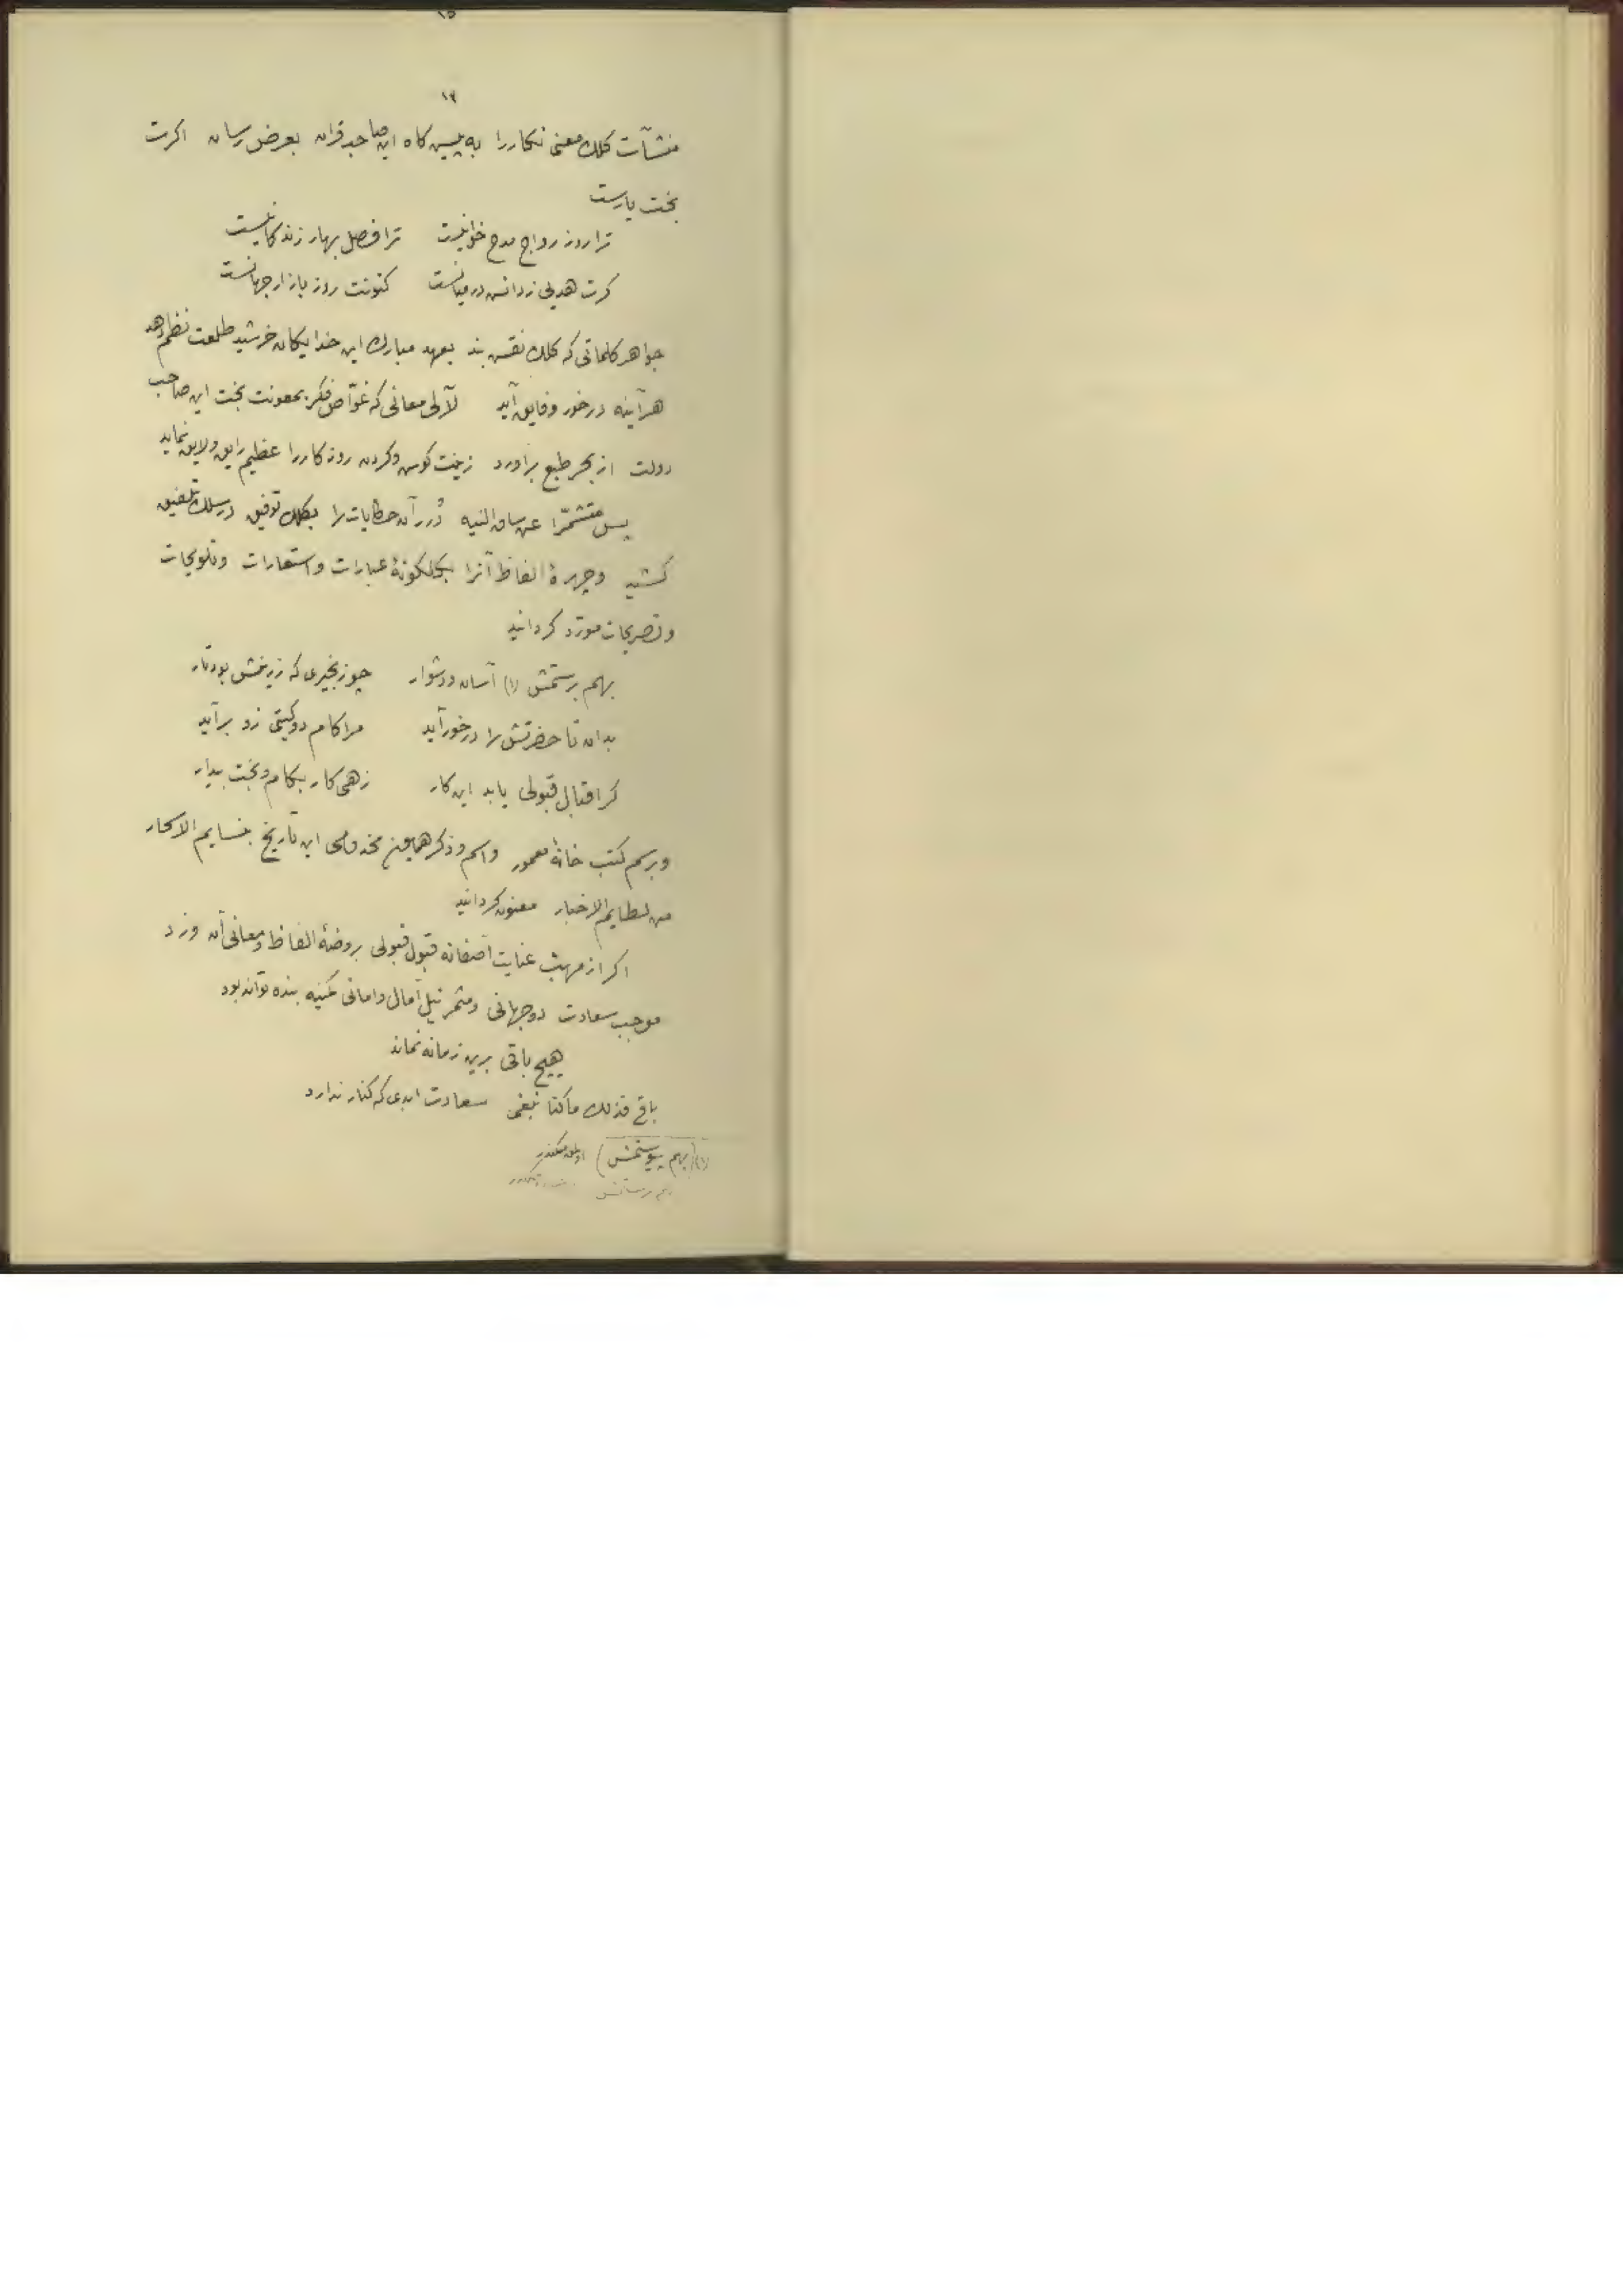 ۱۶
منشآت کلک معنی نکاررا به پیس کاه این صاحبقران بعرض رسان اکرت
بخت یارست
ترا روز رواج مدح خوانیست ترا فصل بهار زندکانیست
کرت هدیی زدانس در میانست کنونت روز بازار جهانست
جواهر کلماتی که کلک نقس بند بعهد مبارک این خدایکان خرشید طلعت نظم دهد
هرآینه درخور وفایق آید لآلی معانی که غوّاص فکر بمعونت بخت این صاحب
دولت از بحر طبع برآورد زینت کوس وکردن روزکاررا عظیم رایق ولایق نماید
پس متشمّرا عن ساق النیه دُرر آن حکایات را بکلک توفیق درسلک تلفیق
کشید وچهرهٔ الفاظ آنرا بکلکونهٔ عبارات واستعارات وتلویحات
وتصریحات مورّد کردانید
بهم برستمش (۱) آسان ودشوار چو زنجیری که زرینش بود تار
بدان تا حضرتش را درخور آید مرا کام دو کیتی زو برآید
کر اقبال قبولی یابد این کار زهی کار بکام وبخت بیدار
وبرسم کتب خانهٔ معمور واسم وذکر همایون مخدومی این تاریخ بنسایم الاسحار
من لطایم الاخبار معنون کردانید
اکر از مهبّ عنایت آصفانه قبول قبولی بروضهٔ الفاظ ومعانی آن وزد
موجب سعادت دوجهانی ومثمر نیل آمال وامانی کمینه بنده تواند بود
هیچ باقی برین زمانه نماند
باقی فذلک ماکنا نبغی سعادت ابدی که کنار ندارد
(۱) (بهم پیوستمش)